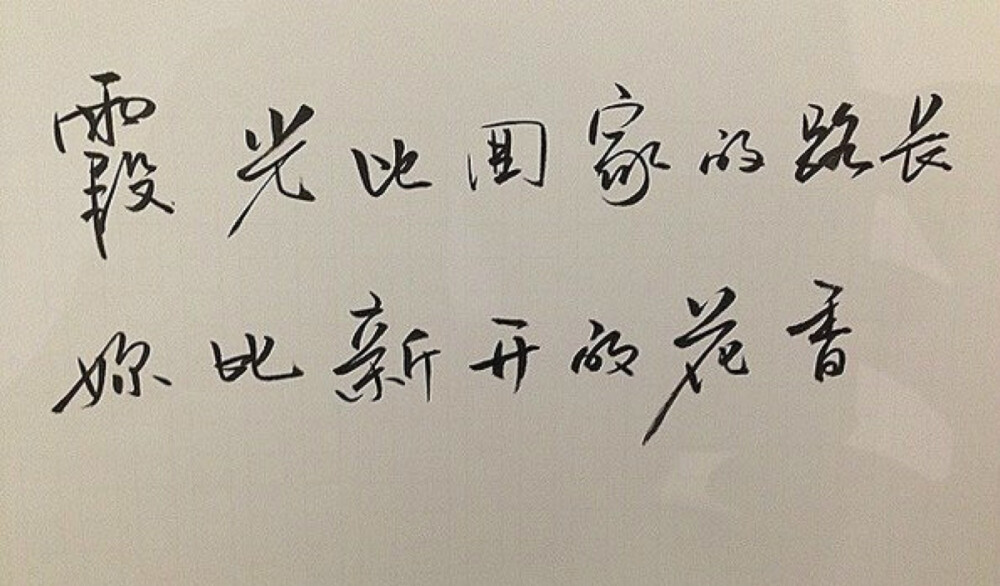 霞光比回家的路长
妳比新开的花香